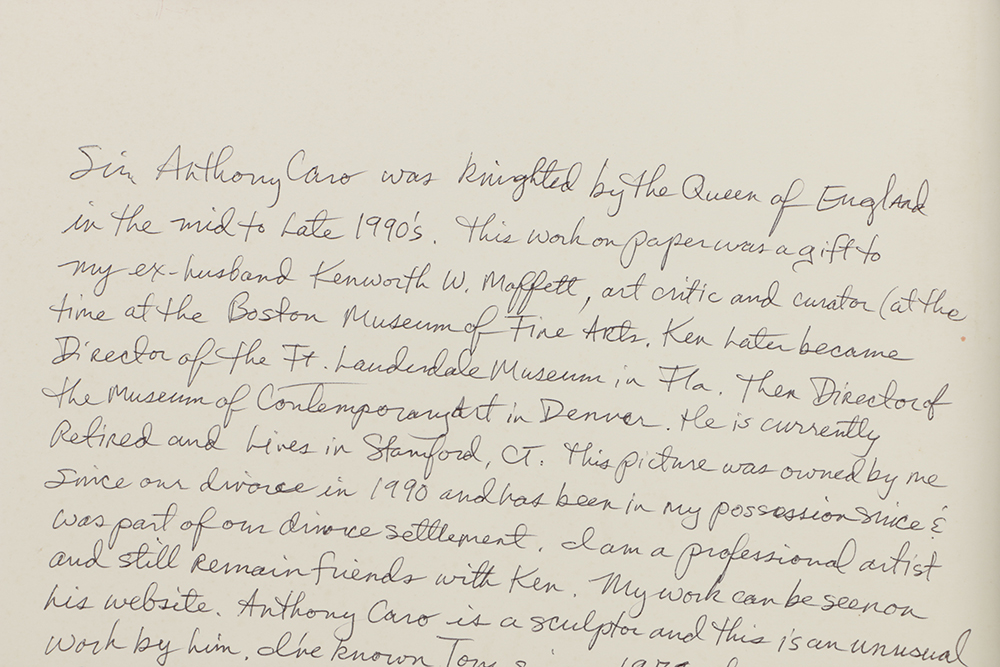 Sir Anthony Caro was knighted by the Queen of England
in the mid to late 1990's. This work on paper was a gift to
my ex-husband Kenworth W. Moffett, art critic and curator (at the
time at the Boston Museum of Fine Arts. Ken later became
Director of the Ft. Lauderdale Museum in Fla. Then Director of
the Museum of Contemporary Art in Denver. He is currently
Retired and lives in Stamford, CT. This picture was owned by me
since our divorce in 1990 and has been in my possession since &
was part of our divorce settlement. I am a professional artist
and still remain friends with Ken. My work can be seen on
his website. Anthony Caro is a sculptor and this is an unusual
work by him. I've known Tony